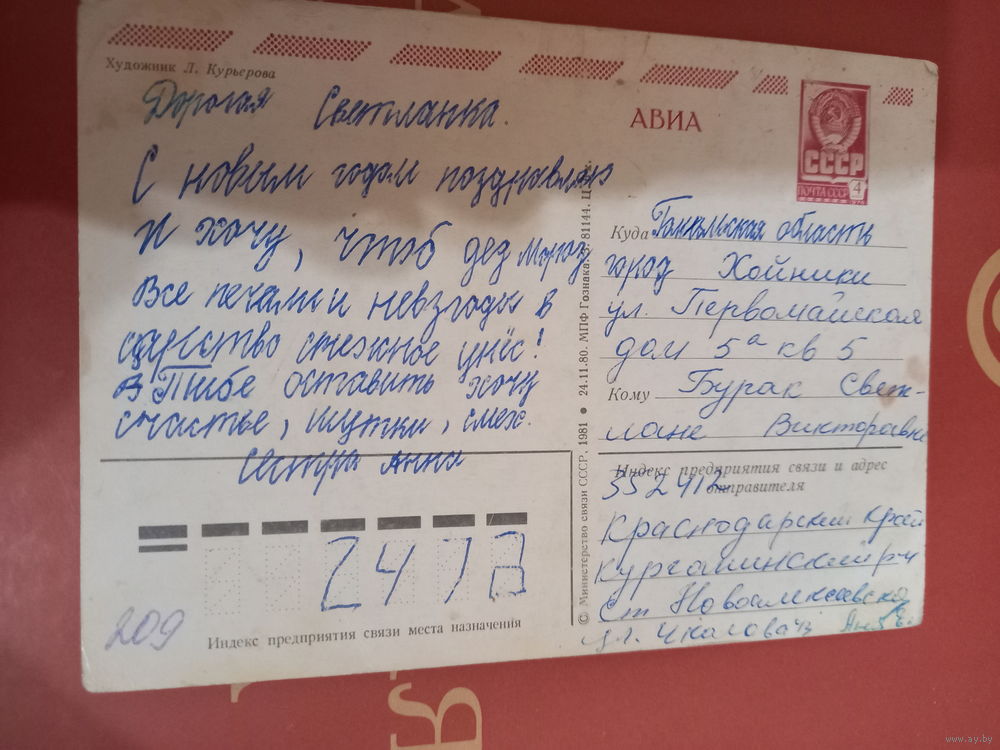 Художник Л. Курьерова
АВИА
СССР
ПОЧТА СССР
4
1976
Дорогая Светланка.
С новым годом поздравляю
И хочу, чтоб дед мороз
Все печали и невзгоды в
царство снежное унёс!
А Тебе оставить хочу
счастье, шутки, смех.
сестра Анна
Куда Гомельская область
город Хойники
ул. Первомайская
дом 5а кв 5
Кому Бурак Свет-
лане Викторавне
Индекс предприятия связи и адрес
отправителя
352412
Краснодарский край
Курганинский р-н
Ст Новоалексеевская
ул. Чкалова
2473
209
Индекс предприятия связи места назначения
© Министерство связи СССР, 1981 ● 24.11.80. МПФ Гознака. 81144. Ц.
www.ay.by